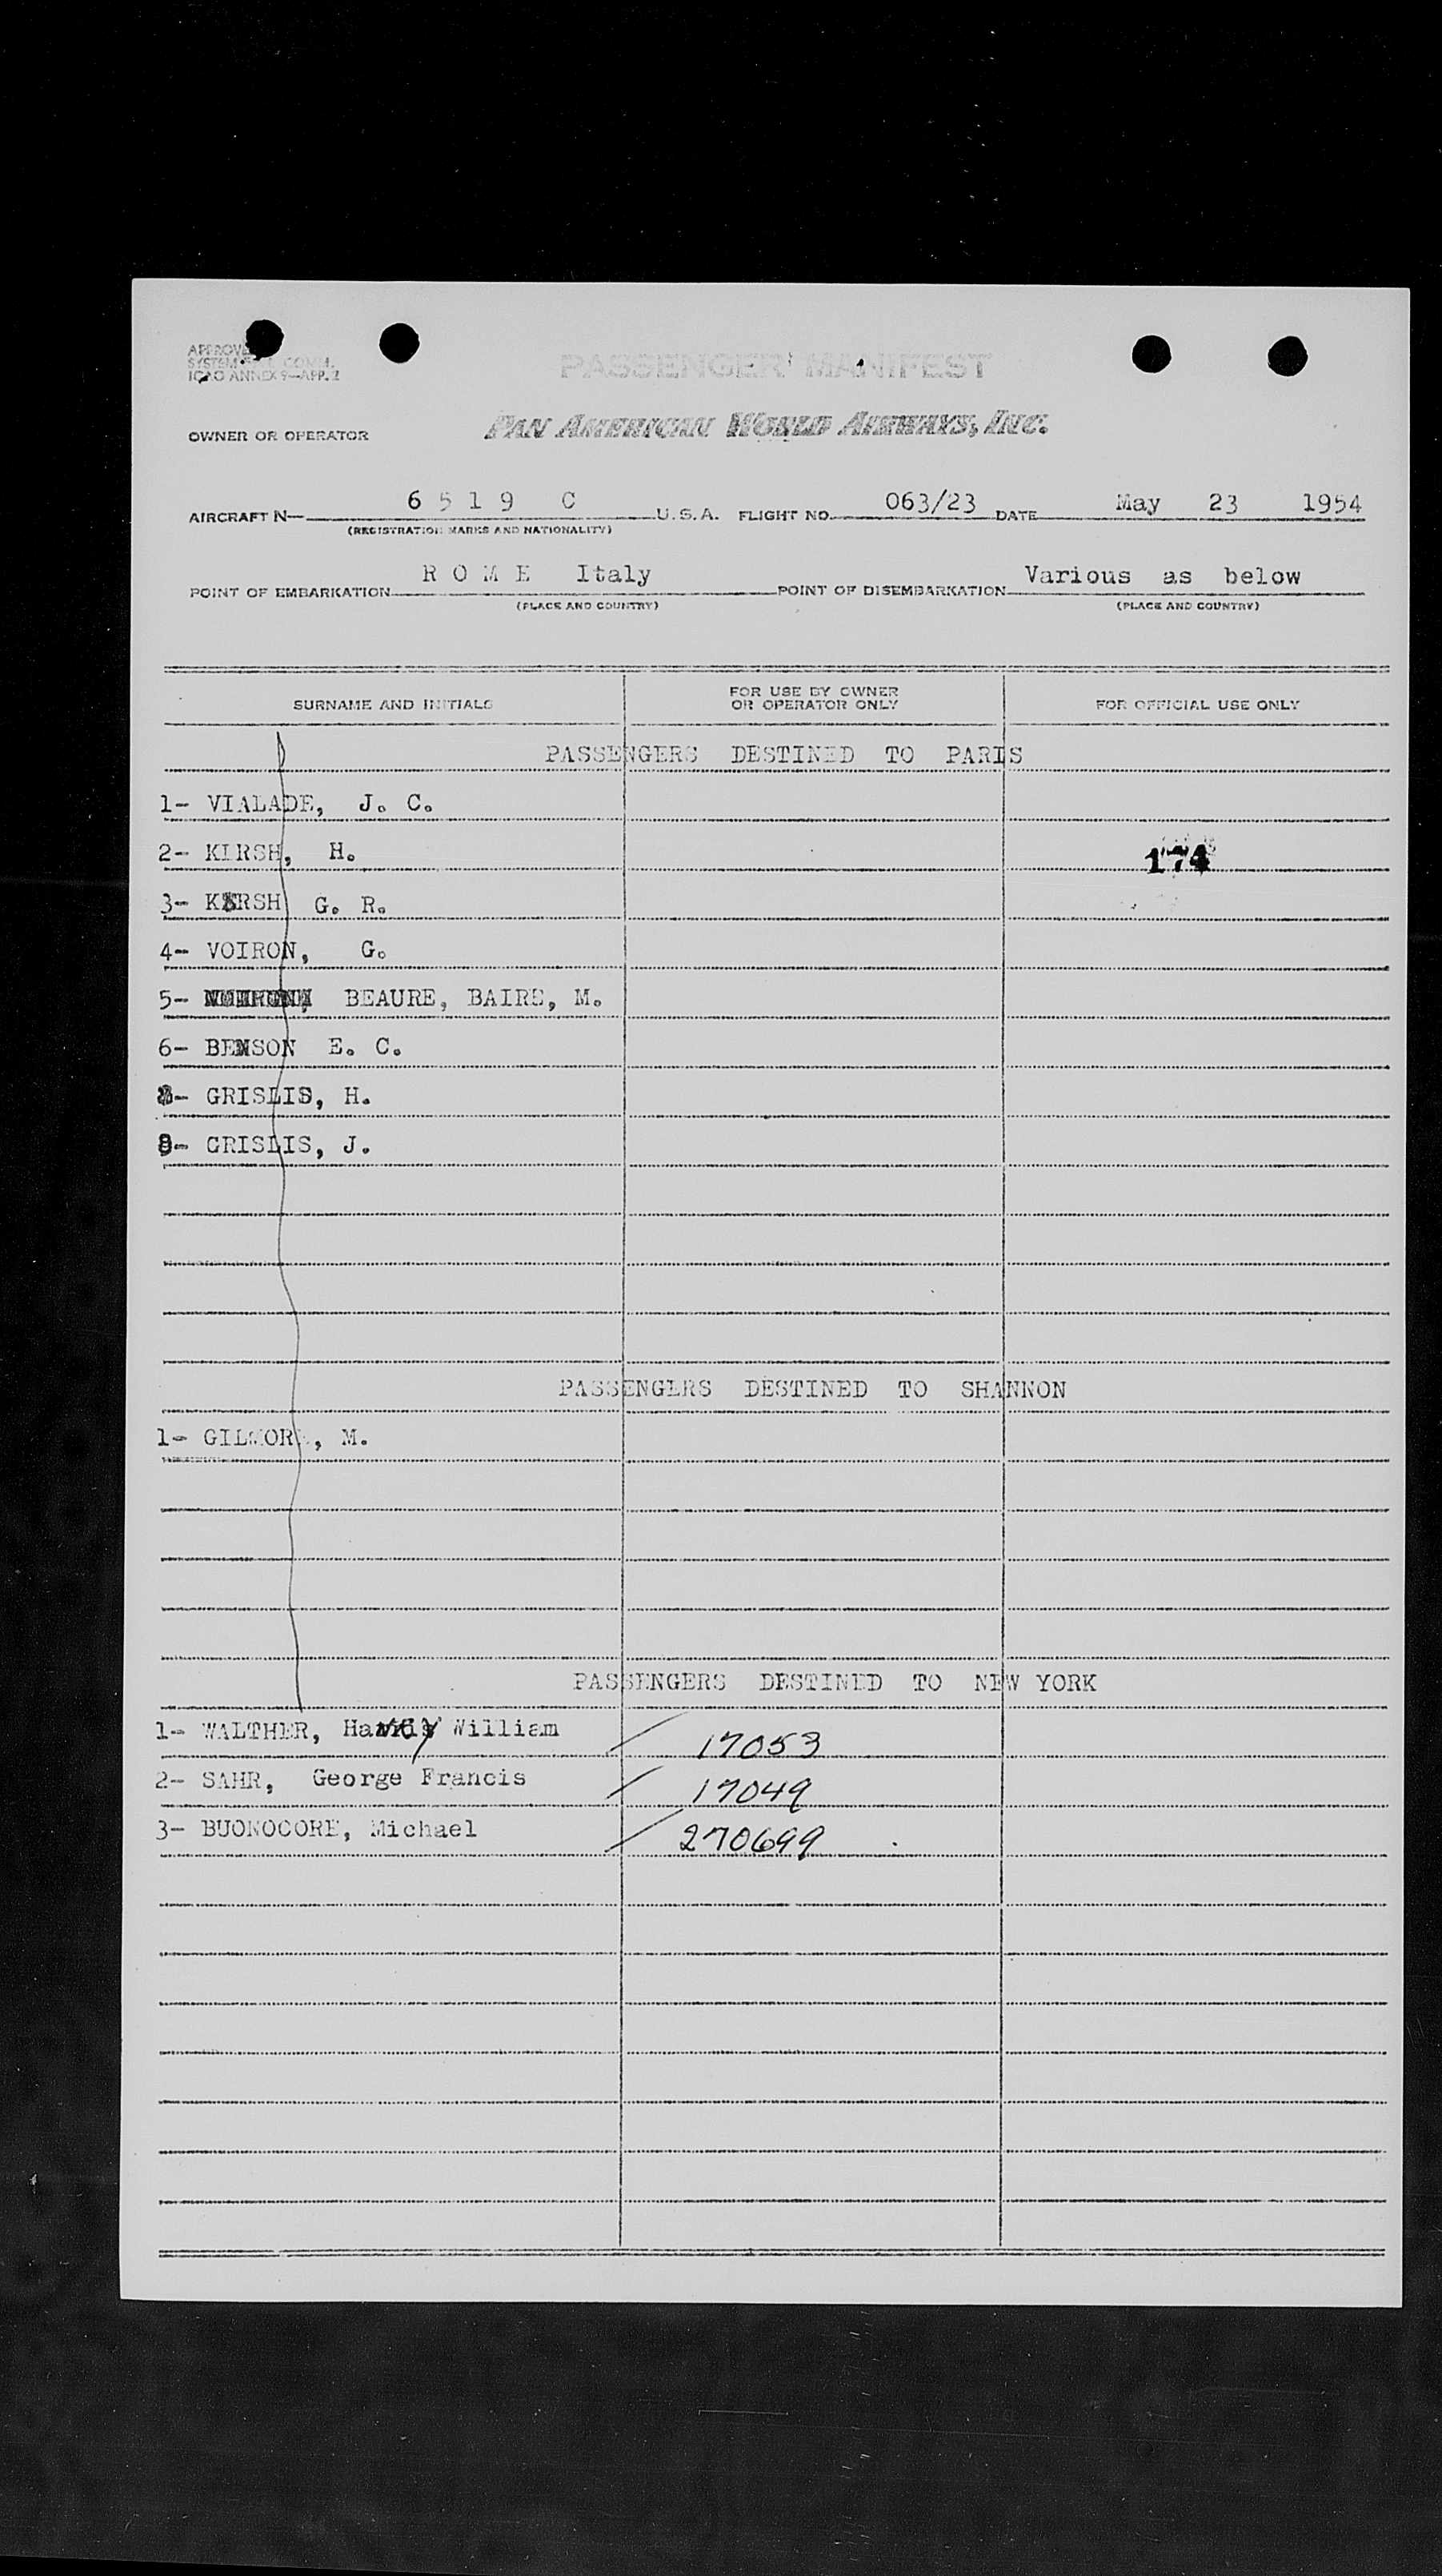 PASSENGER MANIFEST
ICAO ANNEX 9—APP. 2
OWNER OR OPERATOR PAN AMERICAN WORLD AIRWAYS, INC.
AIRCRAFT N— 6 5 1 9 C U.S.A. FLIGHT NO. 063/23 DATE May 23 1954
(REGISTRATION MARKS AND NATIONALITY)
POINT OF EMBARKATION R O M E Italy POINT OF DISEMBARKATION Various as below
(PLACE AND COUNTRY) (PLACE AND COUNTRY)
SURNAME AND INITIALS FOR USE BY OWNER OR OPERATOR ONLY FOR OFFICIAL USE ONLY
PASSENGERS DESTINED TO PARIS
1- VIALADE, J. C.
2- KIRSH, H. 174
3- KIRSH G. R.
4- VOIRON, G.
5- BEAURE, BAIRE, M.
6- BENSON E. C.
GRISLIS, H.
GRISLIS, J.
PASSENGERS DESTINED TO SHANNON
1- GILMORE, M.
PASSENGERS DESTINED TO NEW YORK
1- WALTHER, Harvey William / 17053
2- SAHR, George Francis / 17049
3- BUONOCORE, Michael / 270699